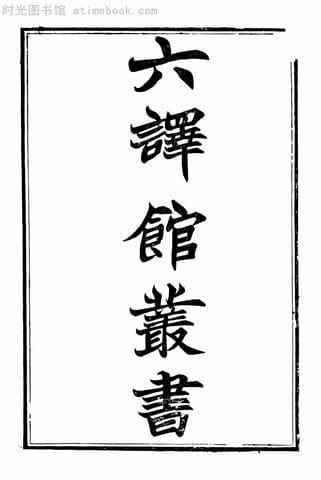 时光图书馆 - atimebook.com
六譯館叢書